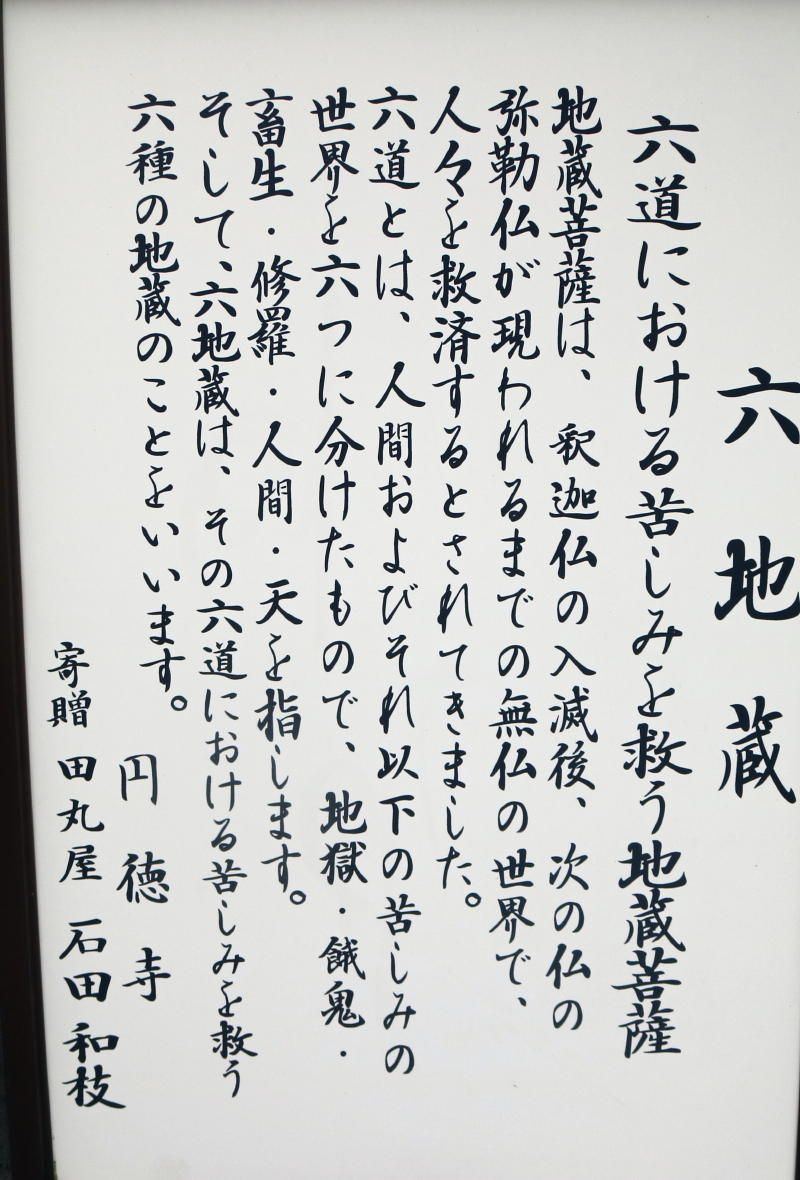 六地蔵
六道における苦しみを救う地蔵菩薩
地蔵菩薩は、釈迦仏の入滅後、次の仏の
弥勒仏が現われるまでの無仏の世界で、
人々を救済するとされてきました。
六道とは、人間およびそれ以下の苦しみの
世界を六つに分けたもので、地獄・餓鬼・
畜生・修羅・人間・天を指します。
そして、六地蔵は、その六道における苦しみを救う
六種の地蔵のことをいいます。
円徳寺
寄贈 田丸屋 石田和枝